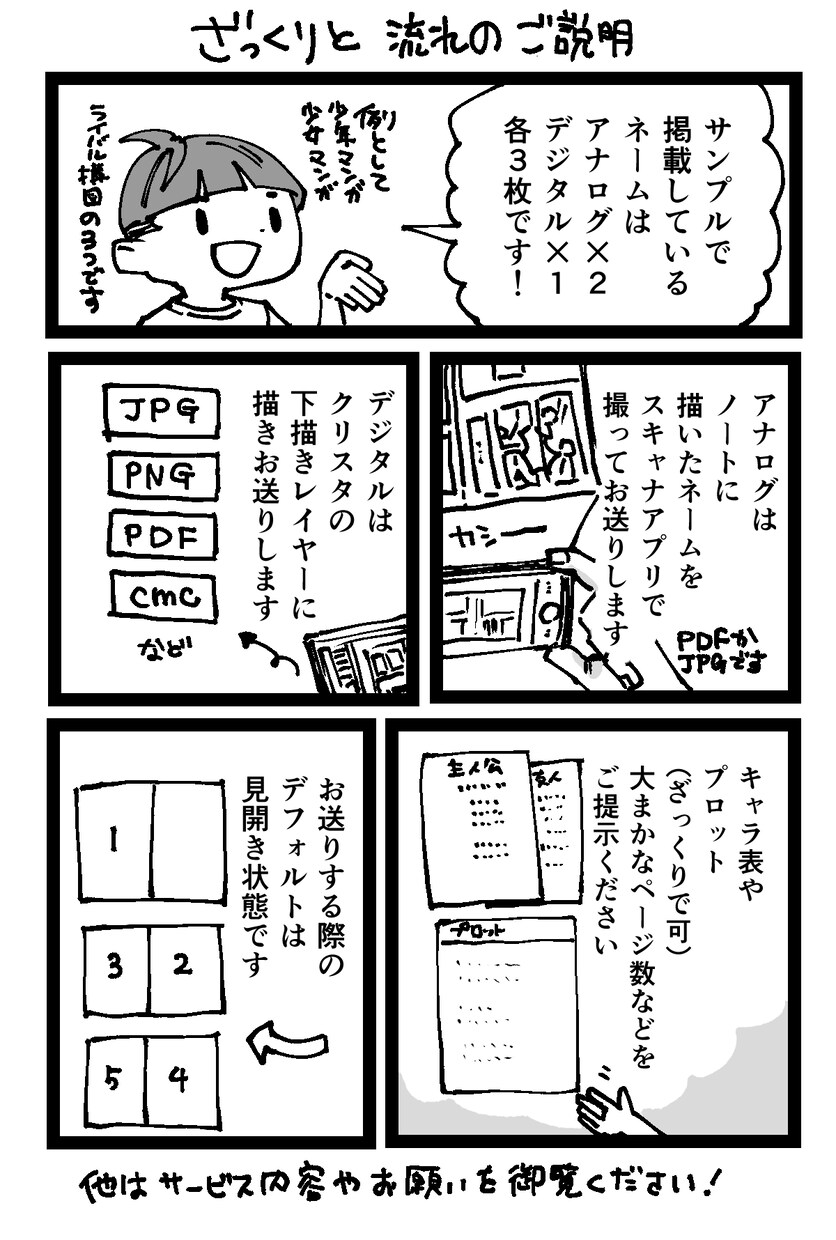 ざっくりと 流れの ご説明
サンプルで
掲載している
ネームは
アナログ×2
デジタル×1
各3枚です!
例として
少年マンガ
少女マンガ
ライバル構図の3つです
アナログは
ノートに
描いたネームを
スキャナアプリで
撮ってお送りします
カシー
PDFか
JPGです
デジタルは
クリスタの
下描きレイヤーに
描きお送りします
JPG
PNG
PDF
cmc
など
キャラ表や
プロット
(ざっくりで可)
大まかなページ数などを
ご提示ください
主人公
友人
プロット
お送りする際の
デフォルトは
見開き状態です
1
3 2
5 4
他は サービス内容や お願いを 御覧ください!